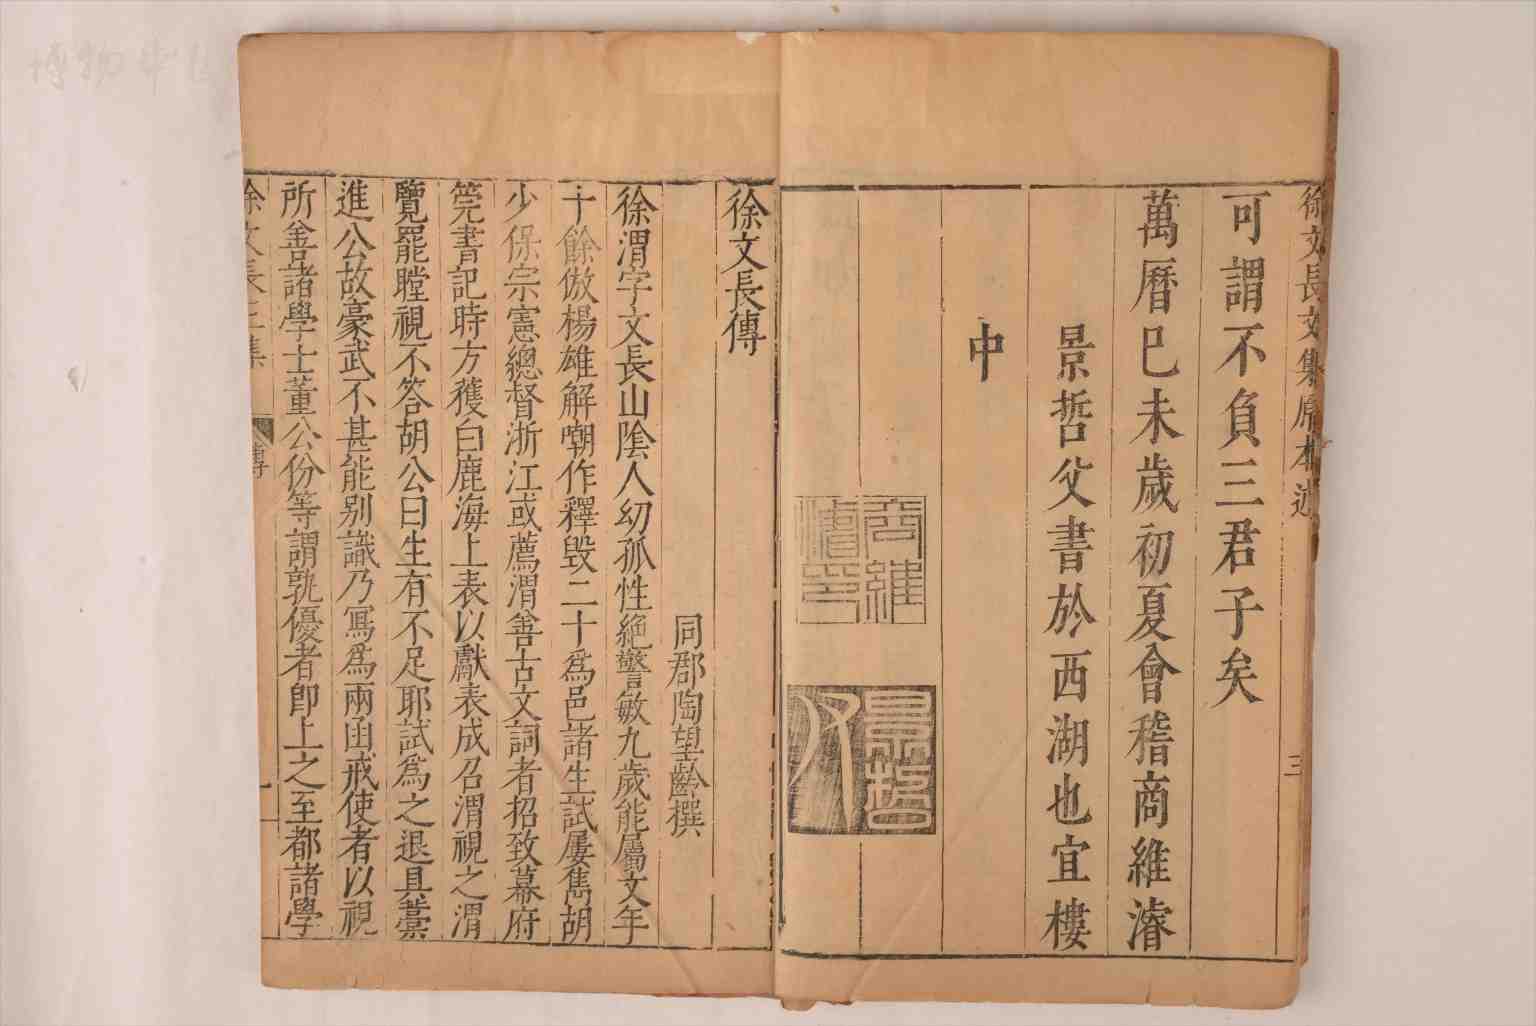 徐文長文集原本述
三
可謂不負三君子矣
萬曆巳未歲初夏會稽商維濬
景哲父書於西湖也宜樓
中
商維濬印
景哲父
徐文長傳
同郡陶望齡撰
徐渭字文長山陰人幼孤性絶警敏九歲能屬文年
十餘倣楊雄解嘲作釋毀二十爲邑諸生試屢雋胡
少保宗憲總督浙江或薦渭善古文詞者招致幕府
筦書記時方獲白鹿海上表以獻表成召渭視之渭
覽罷瞠視不答胡公曰生有不足耶試爲之退具藁
進公故豪武不甚能别識乃寫爲兩函戒使者以視
所善諸學士董公份等謂孰優者卽上之至都諸學
徐文長三集
傳
一